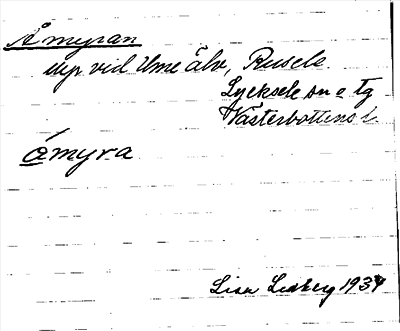 Åmyran
myr vid Ume älv, Rusele
Lycksele sn o tg
Västerbottens l.
åmyra
Lisa Lidberg 1934